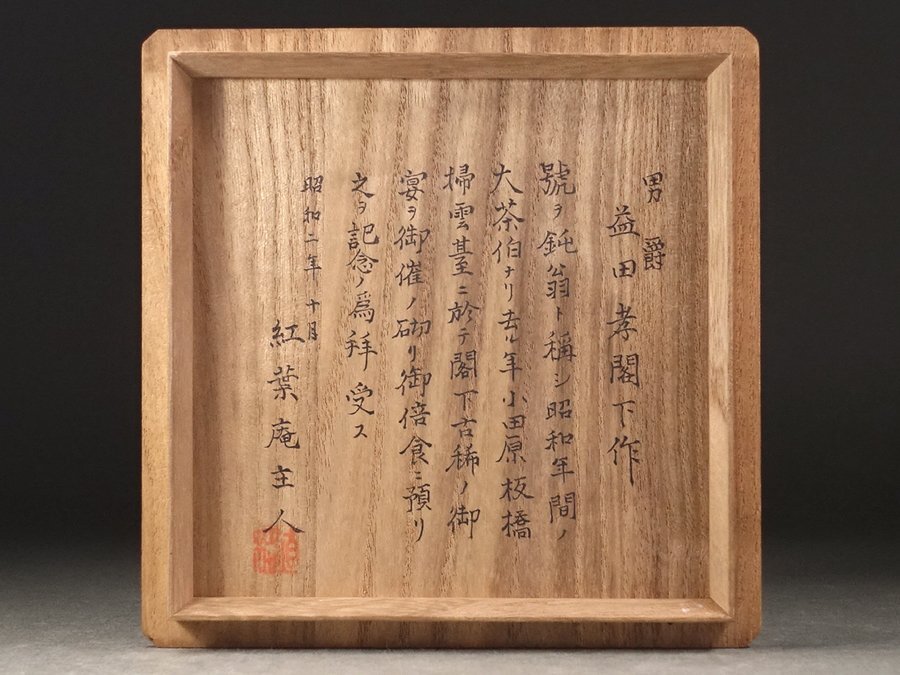 男爵
益田孝閣下作
號ヲ鈍翁ト稱シ昭和年間ノ
大茶伯ナリ去ル年小田原板橋
掃雲臺ニ於テ閣下古稀ノ御
宴ヲ御催ノ砌リ御倍食ニ預リ
之ヲ記念ノ爲拜受ス
昭和二年十月
紅葉庵主人